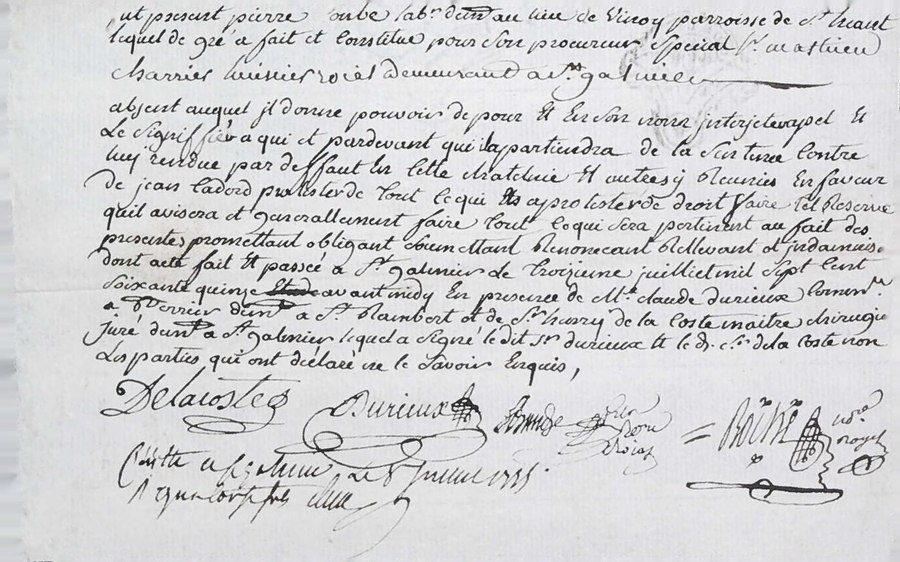 ut present pierre labr demt au lieu de parroisse de St heant
lequel de gré a fait et Constitue pour Son procureur Special Sr mathieu
Charrier huissier roial demeurant a St galmier
absent auquel il donne pouvoir de pour Et En Son nom interjeter apel Et
Le Signiffier a qui et pardevant qui il apartiendra de la Sentence Contre
luy rendue par deffaut En Cette Et autres y Reunies En faveur
de jean protester de tout Ce qui Es a protester de droit faire tel Reserve
quil avisera et generallement faire tout Ce qui Sera pertinent au fait des
presentes promettant obligeant Soumettant Renonceant Rellevant et jndamnisé
dont acte fait Et passé a St galmier Le troizieme juilliet mil Sept Cent
Soixante quinze avant midy En presence de Me Claude Durieux Comm
a demt a St Rambert et de Sr de la Coste maitre Chirurgie
juré demt a St galmier lequel a Signé le dit Sr durieux Et le d. Sr de la Coste non
Les parties qui ont déclaré ne le Savoir Enquis,
Delacoste Durieux nore royal
a St galmier Le 8e juillet 1775.